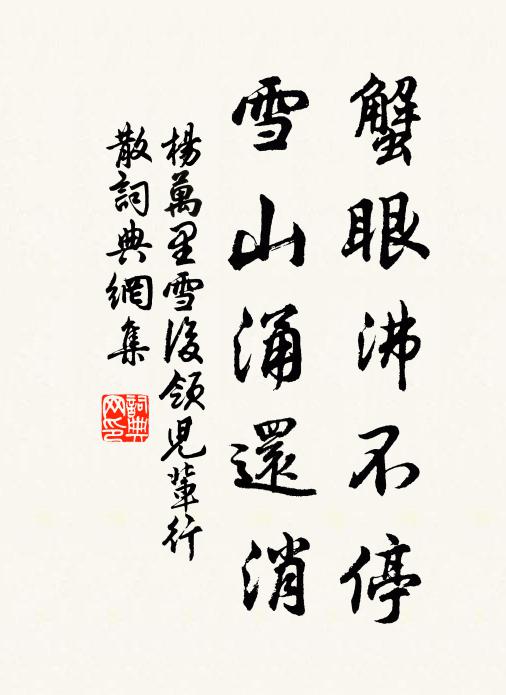 蟹眼沸不停
雪山涌還消
楊萬里雪後領兒輩行
散詞典網集
詞典
网印